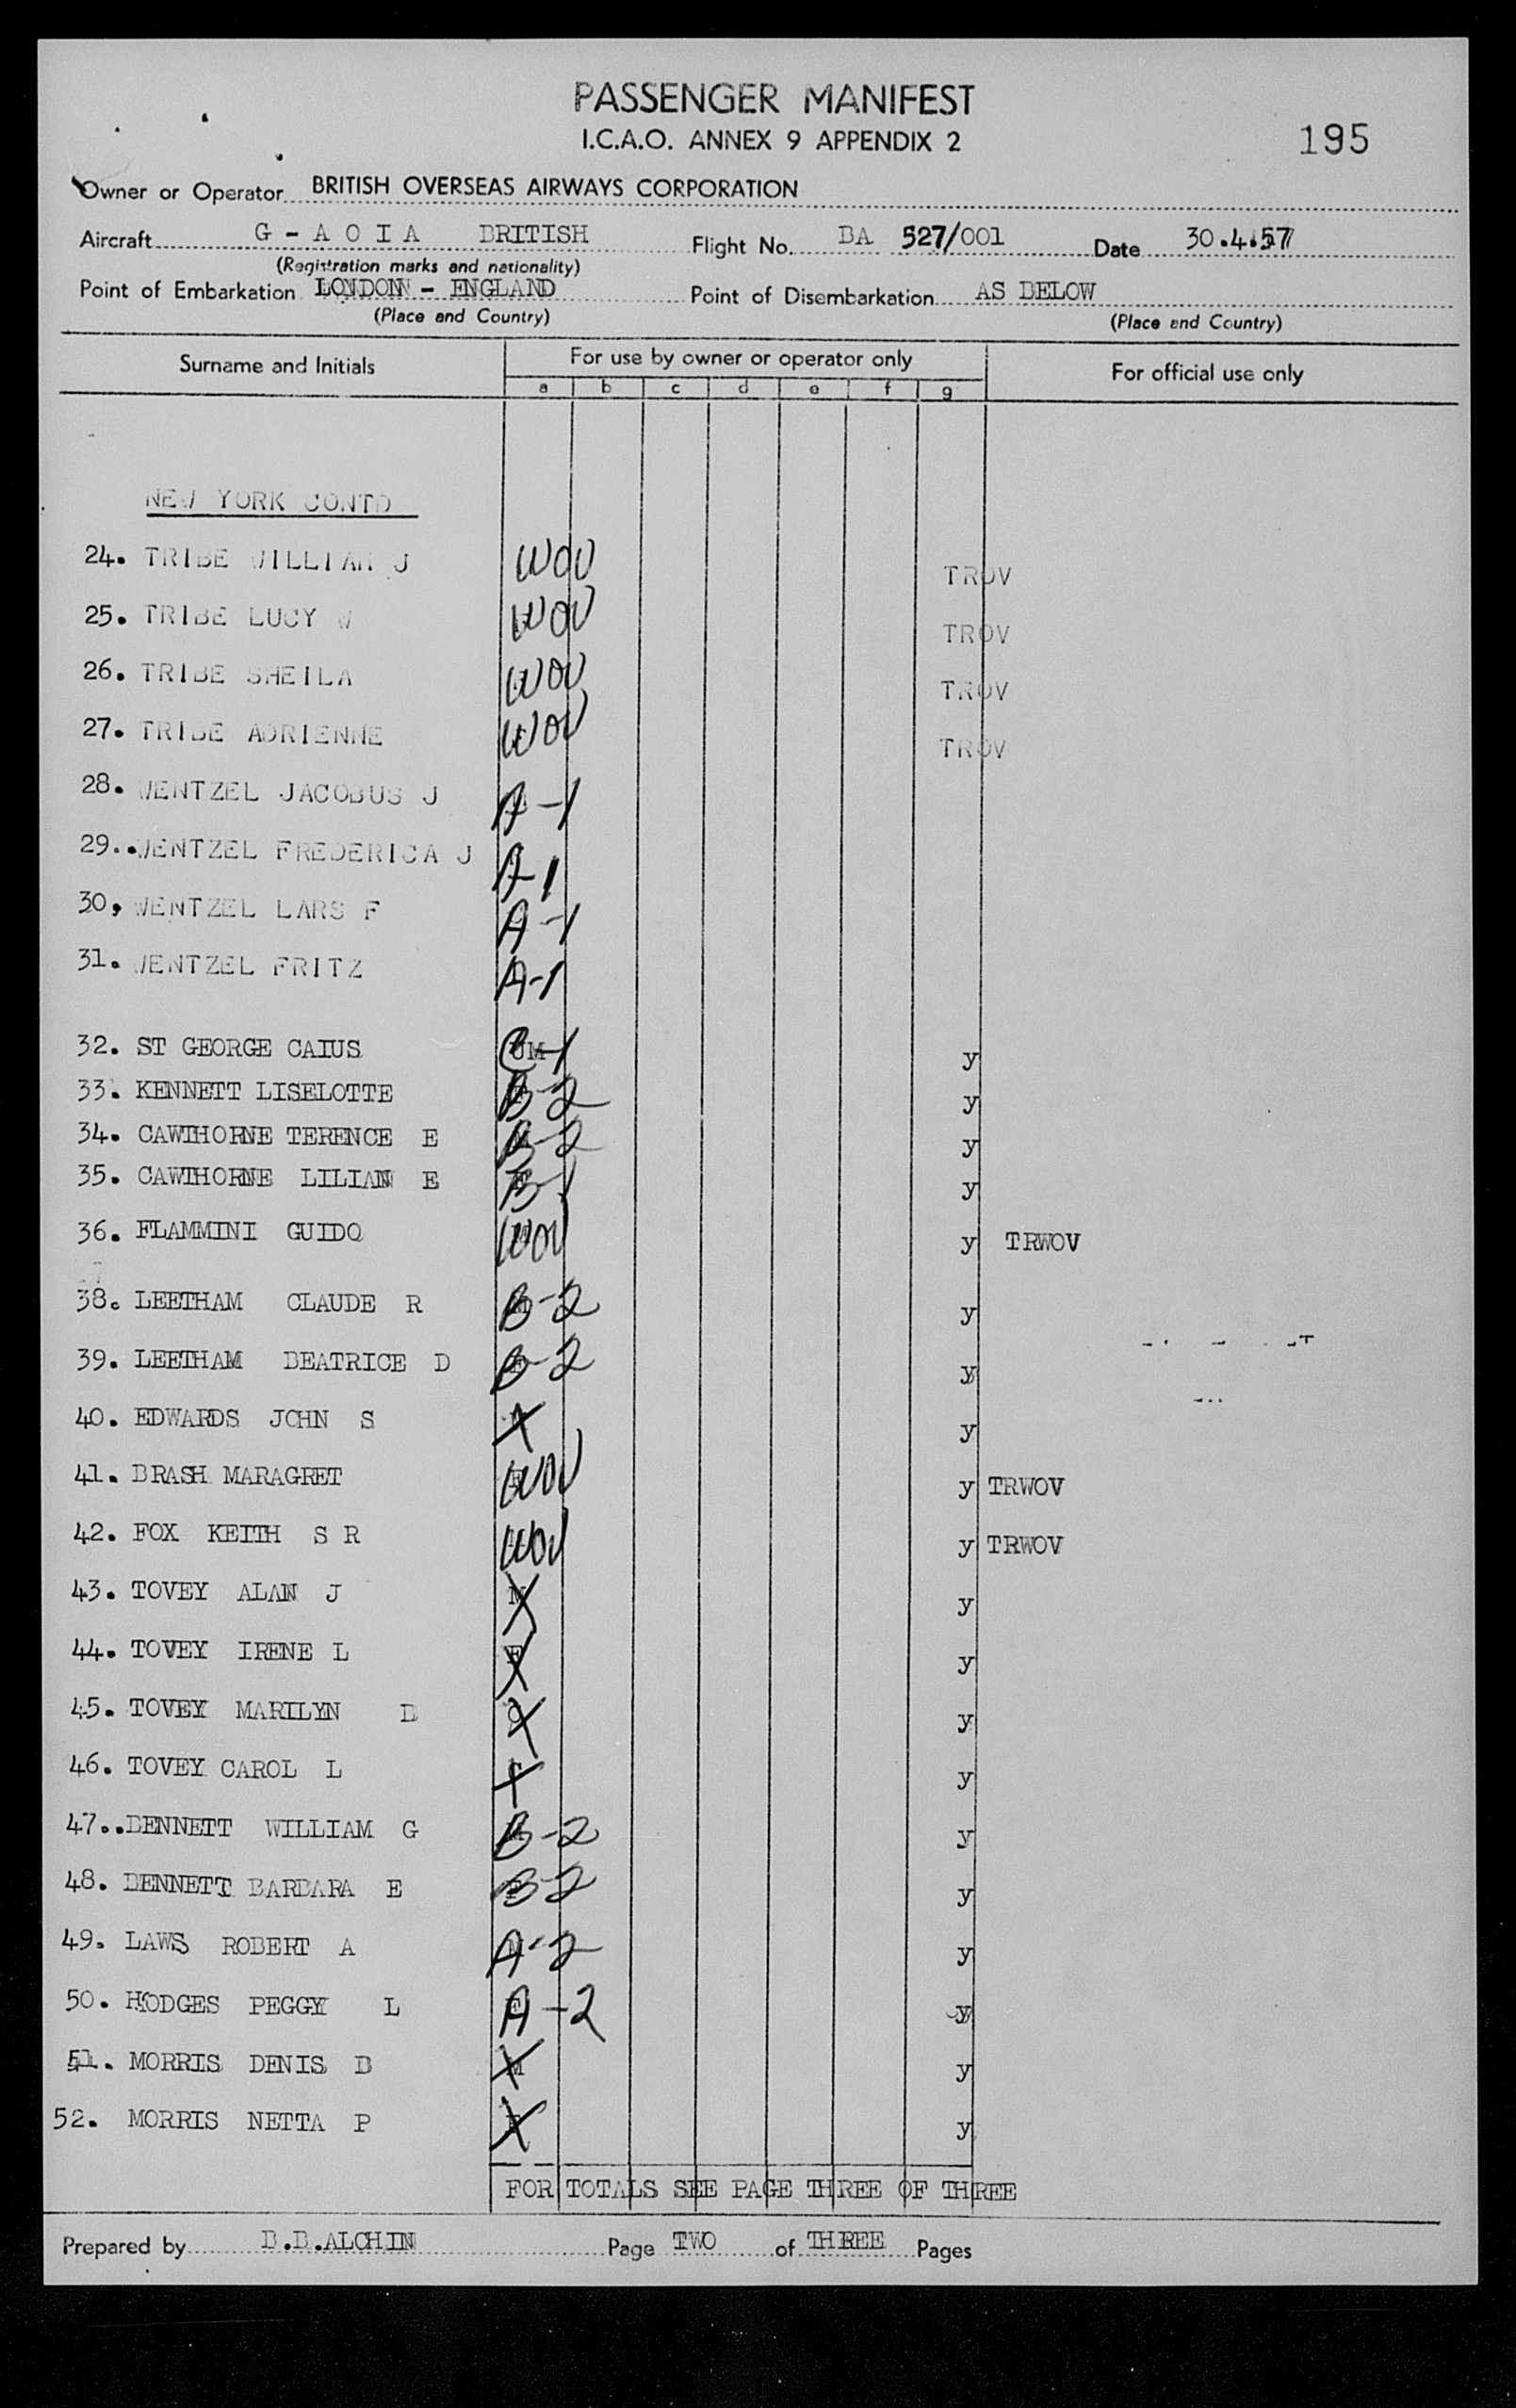 PASSENGER MANIFEST
I.C.A.O. ANNEX 9 APPENDIX 2
195
Owner or Operator BRITISH OVERSEAS AIRWAYS CORPORATION
Aircraft G - A O I A BRITISH Flight No. BA 527/001 Date 30.4.57
(Registration marks and nationality)
Point of Embarkation LONDON - ENGLAND Point of Disembarkation AS BELOW
(Place and Country) (Place and Country)
Surname and Initials For use by owner or operator only For official use only
a b c d e f g
NEW YORK CONTD
24. TRIBE WILLIAM J WOV TROV
25. TRIBE LUCY W WOV TROV
26. TRIBE SHEILA WOV TROV
27. TRIBE ADRIENNE WOV TROV
28. WENTZEL JACOBUS J A-1
29.. WENTZEL FREDERICA J A-1
30, WENTZEL LARS F A-1
31. WENTZEL FRITZ A-1
32. ST GEORGE CAIUS -1 y
33. KENNETT LISELOTTE B-2 y
34. CAWTHORNE TERENCE E B-2 y
35. CAWTHORNE LILIAN E B-1 y
36. FLAMMINI GUIDO WOV y TRWOV
38. LEETHAM CLAUDE R B-2 y
39. LEETHAM BEATRICE D B-2 y
40. EDWARDS JOHN S X y
41. BRASH MARAGRET WOV y TRWOV
42. FOX KEITH S R WOV y TRWOV
43. TOVEY ALAN J M X y
44. TOVEY IRENE L F X y
45. TOVEY MARILYN D X y
46. TOVEY CAROL L X y
47.. BENNETT WILLIAM G B-2 y
48. BENNETT BARBARA E B-2 y
49. LAWS ROBERT A A-2 y
50. HODGES PEGGY L A-2 y
51. MORRIS DENIS B M X y
52. MORRIS NETTA P F X y
FOR TOTALS SEE PAGE THREE OF THREE
Prepared by B.B.ALCHIN Page TWO of THREE Pages